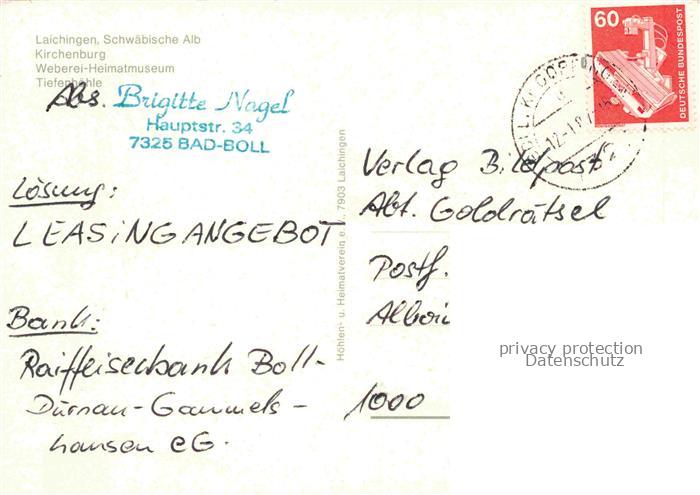 Laichingen, Schwäbische Alb
Kirchenburg
Weberei-Heimatmuseum
Tiefenhöhle
Abs. Brigitte Nagel
Hauptstr. 34
7325 BAD-BOLL
Lösung:
LEASiNGANGEBOT
Bank:
Raiffeisenbank Boll-
Dürnau-Gammels-
hausen eG.
Höhlen- u. Heimatverein e.V., 7903 Laichingen
60
DEUTSCHE BUNDESPOST
Verlag Bildpost
Abt. Goldrätsel
Postf.
1000
privacy protection
Datenschutz